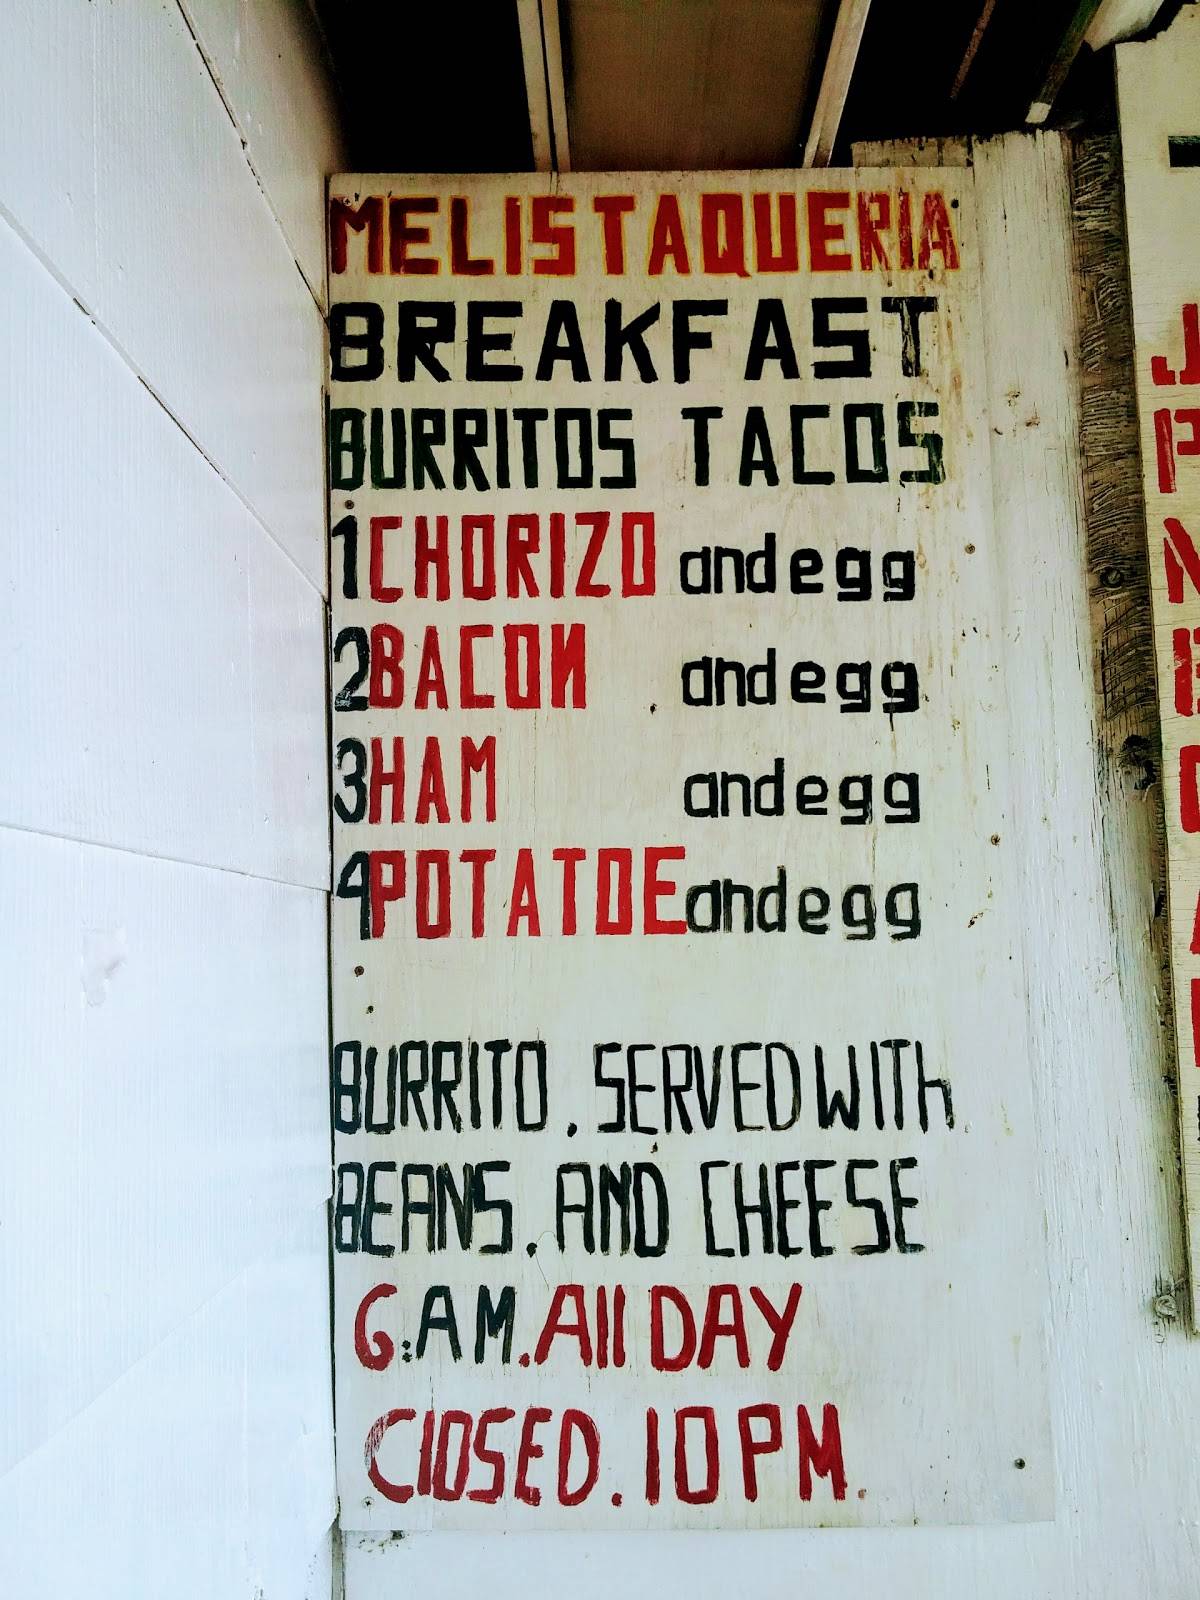 MELIS TAQUERIA
BREAKFAST
BURRITOS TACOS
1 CHORIZO and egg
2 BACON and egg
3 HAM and egg
4 POTATOE and egg
BURRITO. SERVED WITh
BEANS. AND CHEESE
6:AM. All DAY
ClOSED. 10 PM.